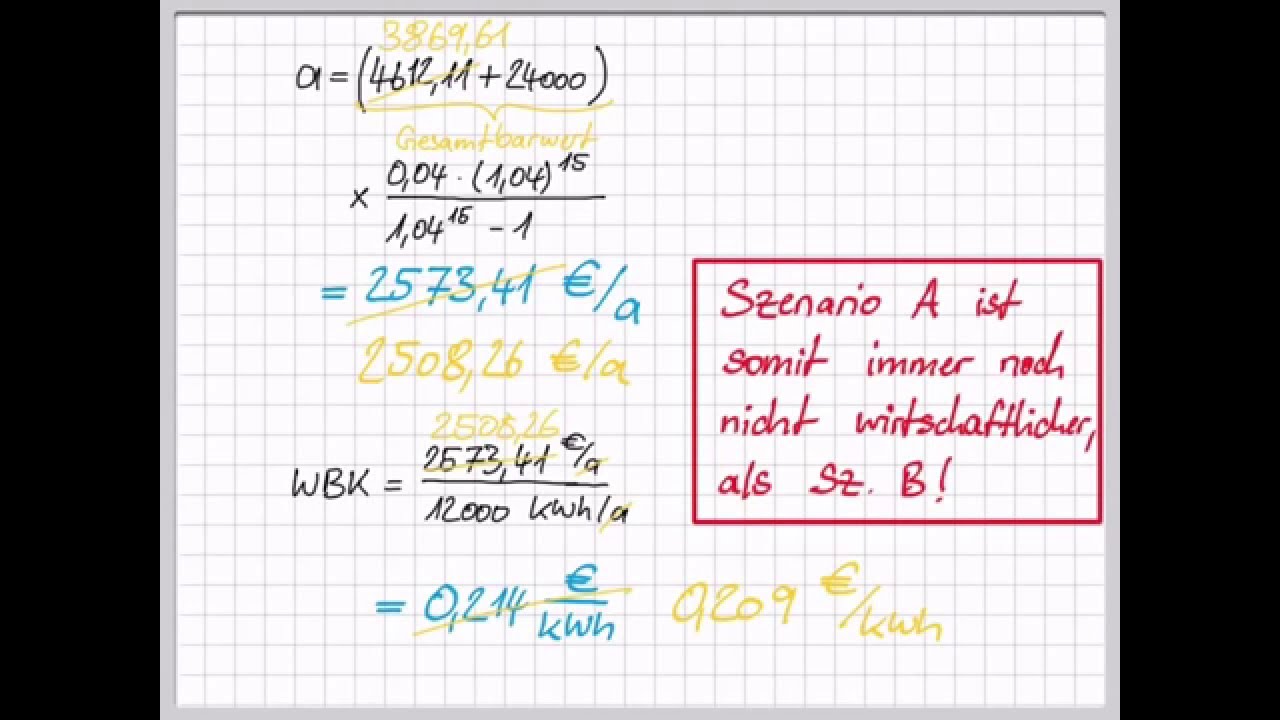 3869,61
a = (4612,11 + 24000)
Gesamtbarwert
× 0,04 · (1,04)^15
1,04^15 - 1
= 2573,41 €/a
2508,26 €/a
2508,26
WBK = 2573,41 €/a
12000 kWh/a
= 0,214 €/kWh 0,209 €/kWh
Szenario A ist
somit immer noch
nicht wirtschaftlicher,
als Sz. B!